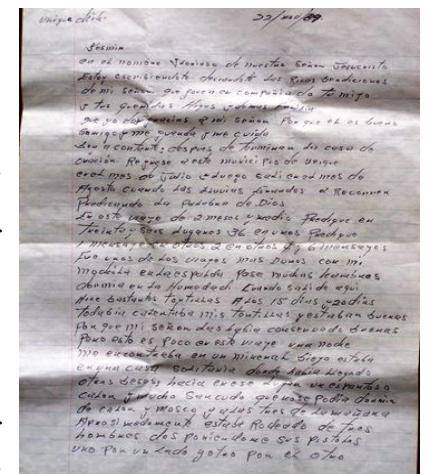 Urique chih. 22/nov/89.
Jesmin
en el nombre glorioso de nuestro Señor Jesucristo
Estoy escribiendote deciendote las Ricas bendiciones
de mi Señor que goce en compañia de tu mijo
y tus queridos Hijos y demas familia
que yo doy gracias a mi Señor Porque el es bueno
conmigo y me guarda y me cuida
despues de terminar la casa de
oración Regrese a este municipio de Urique
en el mes de Julio y luego sali en el mes de
Agosto cuando las lluvias a Recorrer
Predicando la Palabra de Dios
En este viaje de 2 meses y medio Predique en
treinta y seis lugares 36 en unos Predique
1 mensaje en otros 2 en otros 4 y 6 mensajes
Fue unos de los viajes mas Duros con mi
mochila en la espalda Pase muchas hambres
dormia en la Humedad Cuando sali de aqui
Hice bastantes tortillas A los 15 dias y 20 dias
todabia calentaba mis tortillas y estaban buenas
Por que mi Señor las habia conservado buenas
Pero esto es poco en este viaje una noche
me encontraba en un mineral biejo estaba
en una casa solitaria donde habia llegado
otras beses hacia en ese lugar un espantoso
calor y mucho Sancudo que no se podia dormir
de calor y Mosco y a las tres de la mañana
Aprosimadamente estaba Rodeado de tres
hombres dos poniendome sus Pistolas
uno Por un lado y otro por el otro